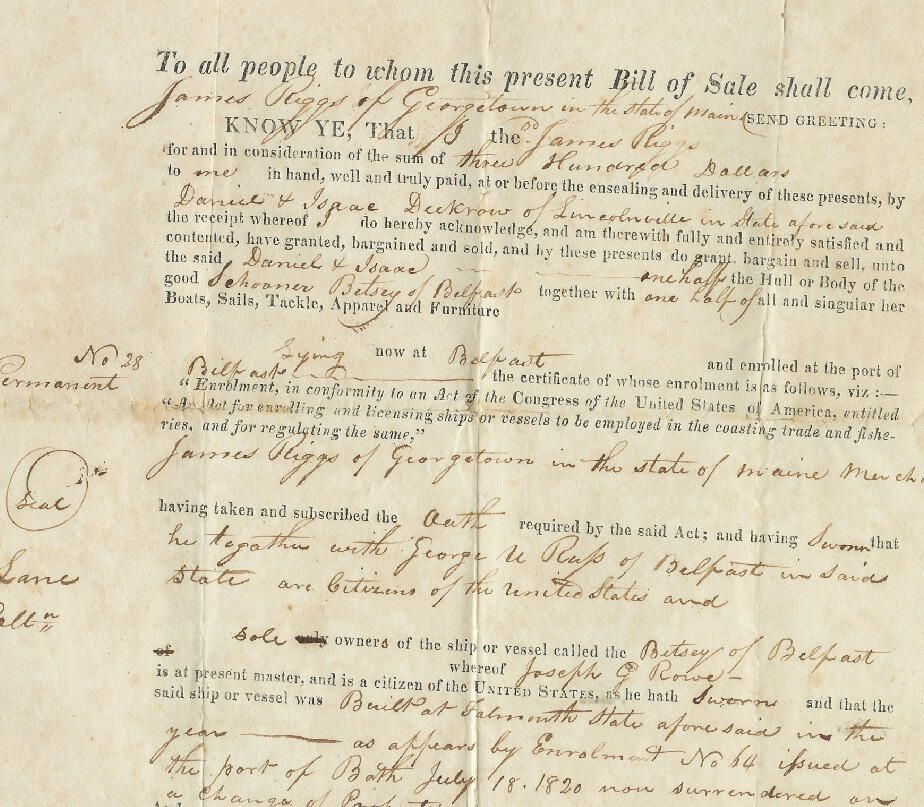 To all people to whom this present Bill of Sale shall come,
James Riggs of Georgetown in the state of Maine SEND GREETING:
KNOW YE, That I the sd James Riggs
for and in consideration of the sum of three Hundred Dollars
to me in hand, well and truly paid, at or before the ensealing and delivery of these presents, by
Daniel & Isaac Deckrow of Lincolnville in State aforesaid
the receipt whereof I do hereby acknowledge, and am therewith fully and entirely satisfied and
contented, have granted, bargained and sold, and by these presents do grant, bargain and sell, unto
the said Daniel & Isaac one half the Hull or Body of the
good Schooner Betsey of Belfast together with one half of all and singular her
Boats, Sails, Tackle, Apparel and Furniture
Lying now at Belfast and enrolled at the port of
No 28
Belfast the certificate of whose enrolment is as follows, viz:—
Permanent
"Enrolment, in conformity to an Act of the Congress of the United States of America, entitled
"An Act for enrolling and licensing ships or vessels to be employed in the coasting trade and fishe-
ries, and for regulating the same,"
James Riggs of Georgetown in the state of maine Merch
Seal
having taken and subscribed the Oath required by the said Act; and having Sworn that
he togather with George U Russ of Belfast in said
Lane
State are Citizens of the United States and
Sole only owners of the ship or vessel called the Betsey of Belfast
of whereof Joseph G Rowe
is at present master, and is a citizen of the UNITED STATES, as he hath Sworn and that the
said ship or vessel was Built at Falmouth State aforesaid in the
year as appears by Enrolment No 64 issued at
the port of Bath July 18. 1820 now surrendered on
a change of